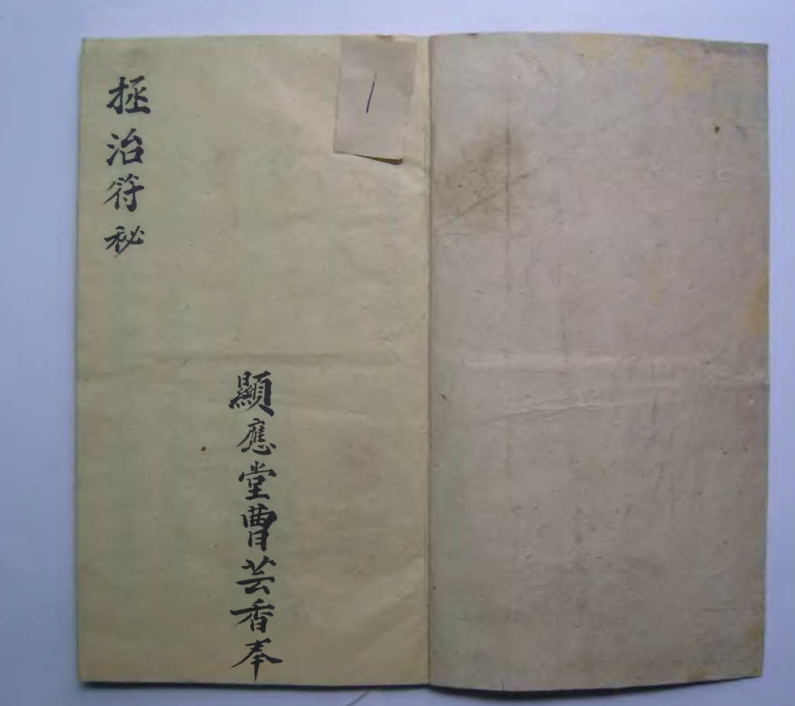 拯治符秘
顯應堂曹芸香奉
1